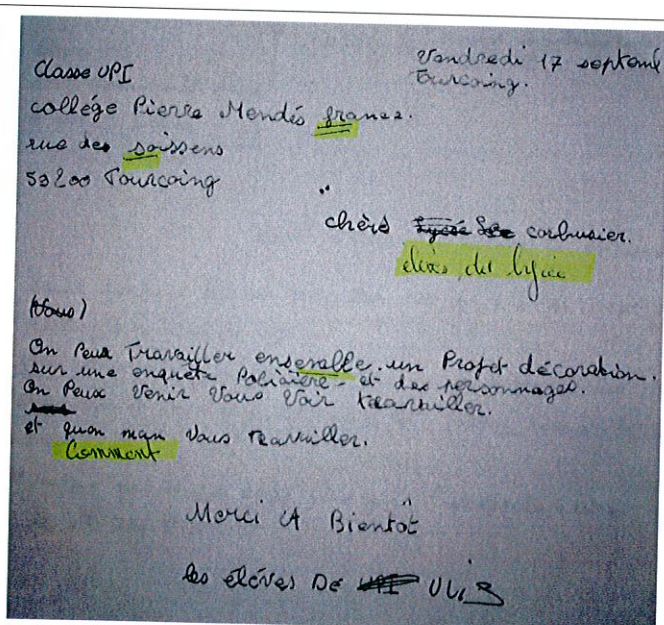 Classe UPI
Vendredi 17 septemb
Tourcoing.
collége Pierre Mendés france.
rue des soissens
59200 Tourcoing
chèrs corbusier.
élèves du lycée
(Vous)
On Peux Travailler ensemble. un Projet décoration.
sur une enquéte Policière. et des personnages.
On Peux Venir Vous Voir travailler.
et quon man Vous travailler.
Comment
Merci A Bientôt
les élèves De ULIS